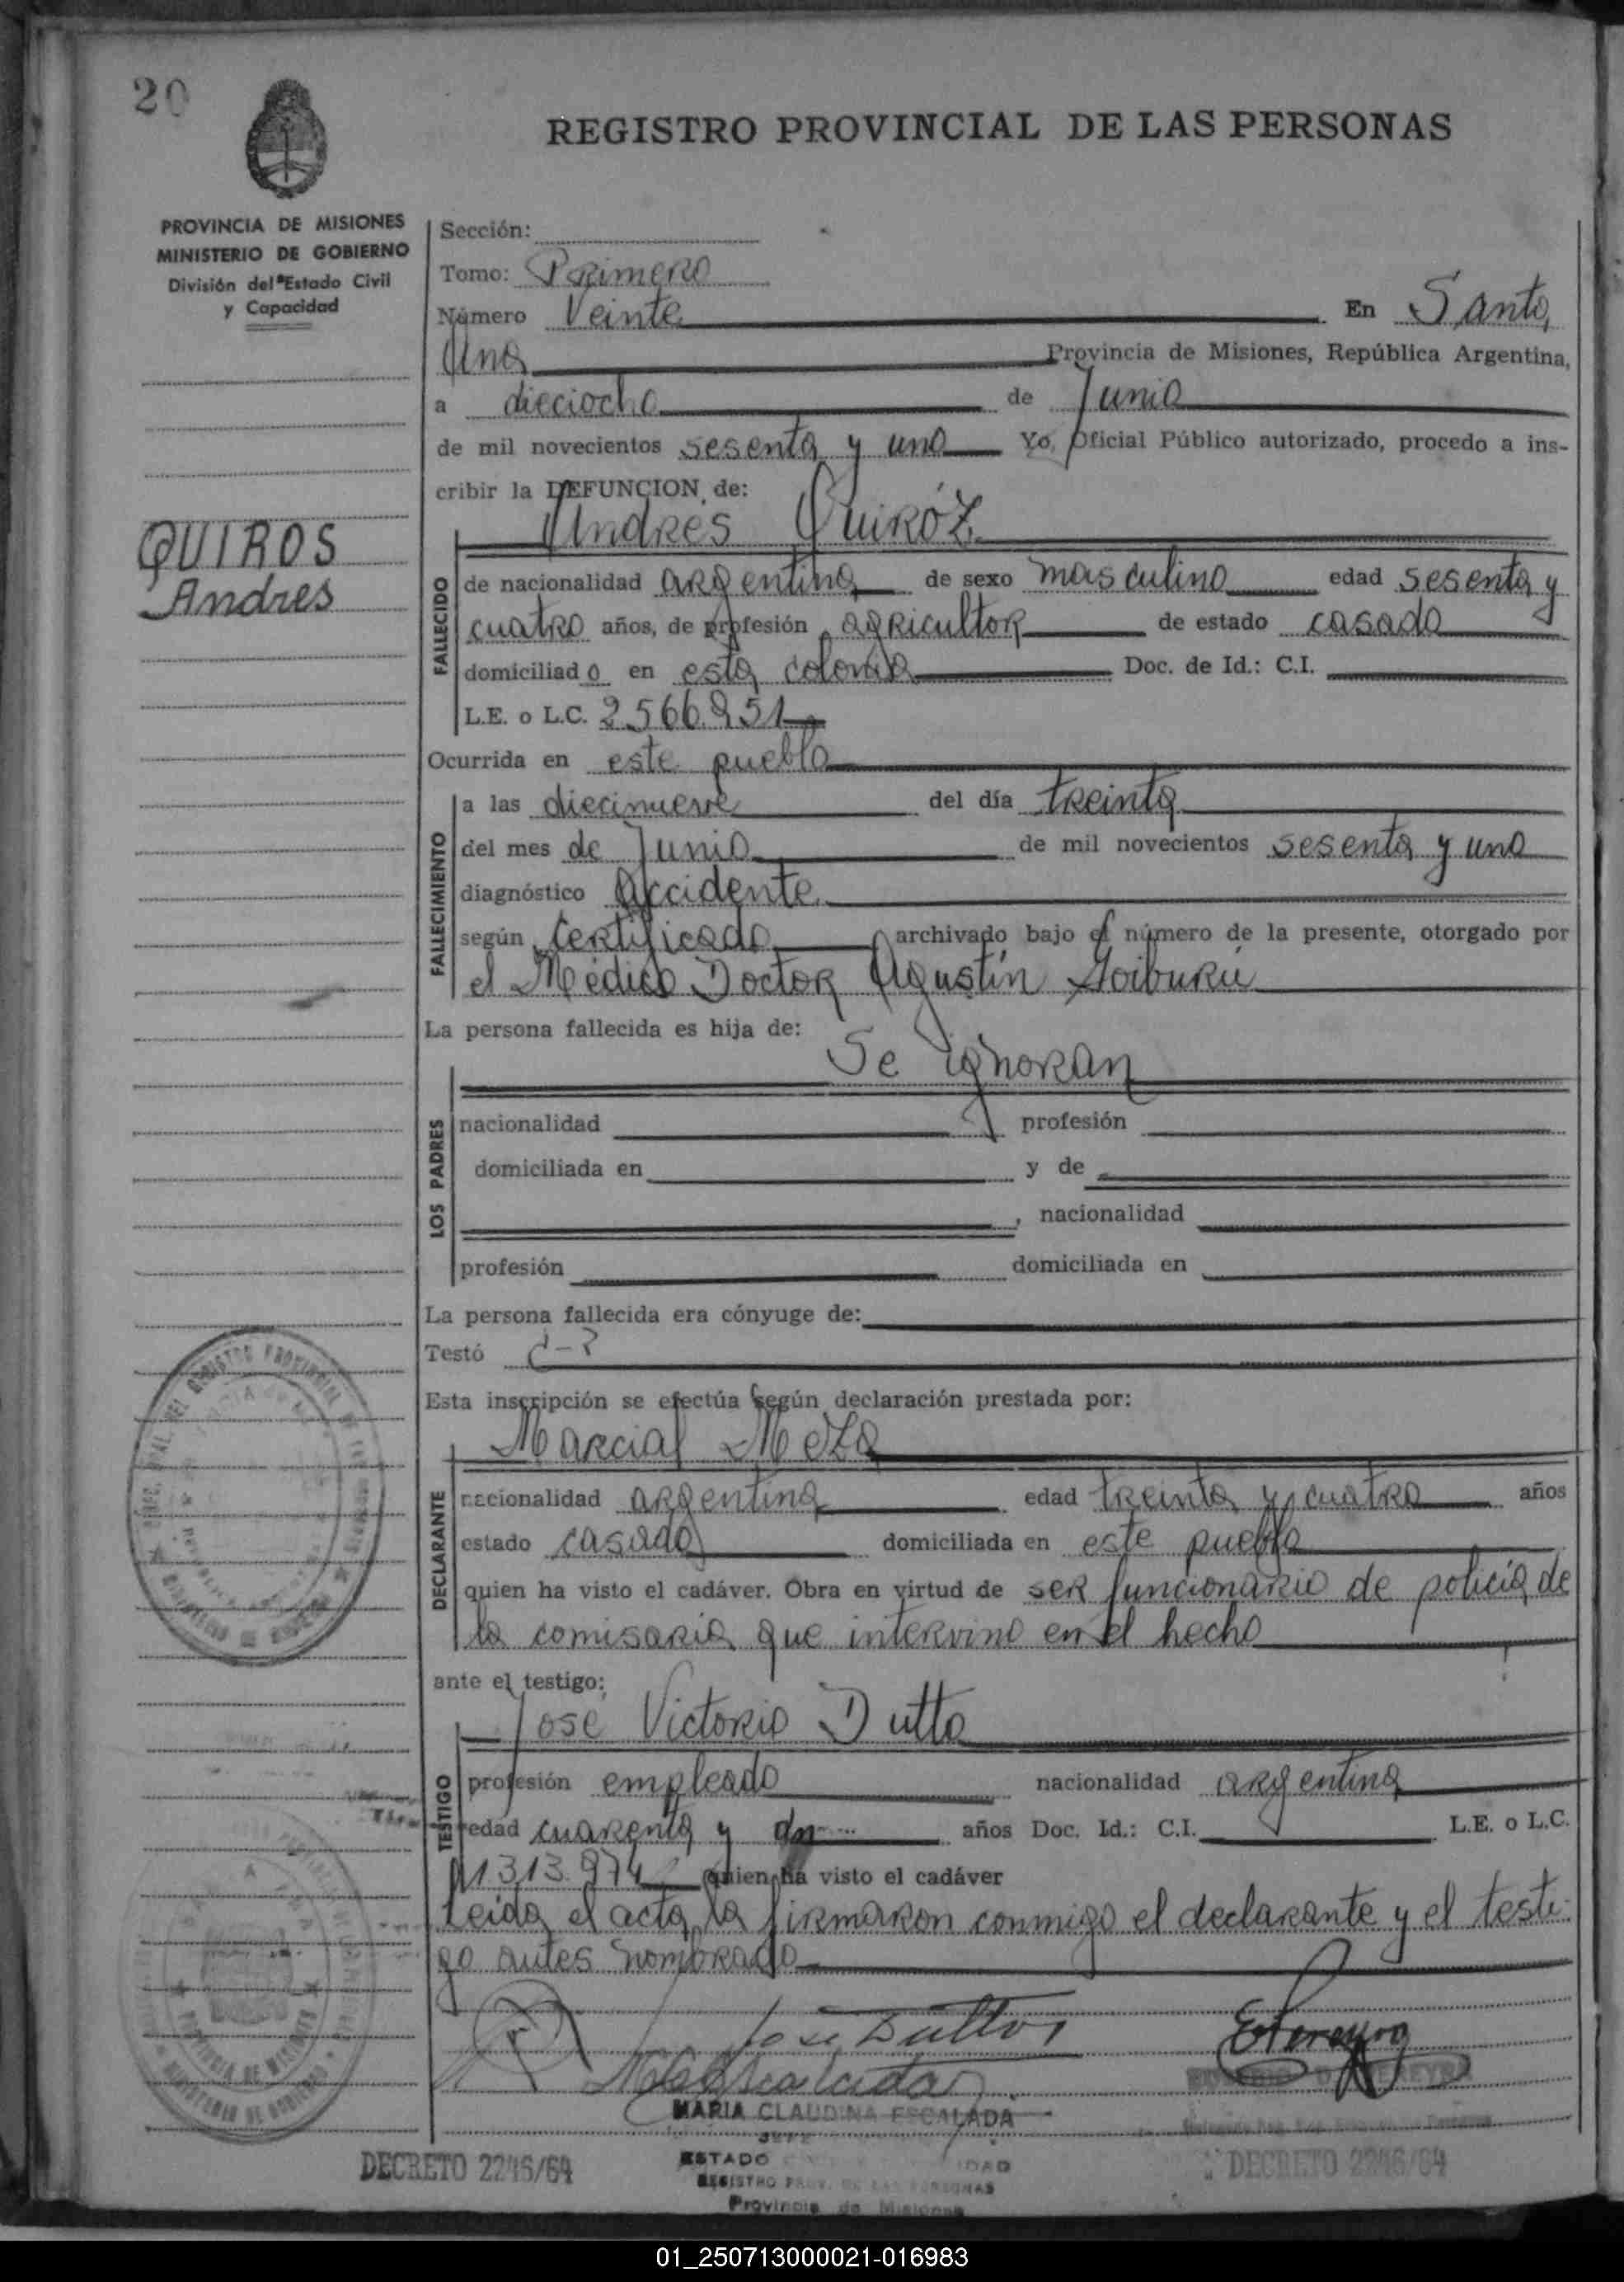 20
REGISTRO PROVINCIAL DE LAS PERSONAS
PROVINCIA DE MISIONES
MINISTERIO DE GOBIERNO
División del Estado Civil
y Capacidad
QUIROS
Andres
Sección:
Tomo: Primero
Número Veinte En Santa
Ana Provincia de Misiones, República Argentina,
a dieciocho de Junio
de mil novecientos sesenta y uno Yo, Oficial Público autorizado, procedo a ins-
cribir la DEFUNCION de:
Andrés Quiróz
FALLECIDO
de nacionalidad argentina de sexo masculino edad sesenta y
cuatro años, de profesión agricultor de estado casado
domiciliado en esta colonia Doc. de Id.: C.I.
L.E. o L.C. 2566951
Ocurrida en este pueblo
FALLECIMIENTO
a las diecinueve del día treinta
del mes de Junio de mil novecientos sesenta y uno
diagnóstico accidente
según certificado archivado bajo el número de la presente, otorgado por
el Médico Doctor Agustín Goiburú
La persona fallecida es hija de:
Se ignoran
LOS PADRES
nacionalidad profesión
domiciliada en y de
, nacionalidad
profesión domiciliada en
La persona fallecida era cónyuge de:
Testó
Esta inscripción se efectúa según declaración prestada por:
Marcial Meza
DECLARANTE
nacionalidad argentina edad treinta y cuatro años
estado casado domiciliada en este pueblo
quien ha visto el cadáver. Obra en virtud de ser funcionario de policía de
la comisaria que intervino en el hecho
ante el testigo:
José Victorio Dutto
TESTIGO
profesión empleado nacionalidad argentina
edad cuarenta y años Doc. Id.: C.I. L.E. o L.C.
1313974 quien ha visto el cadáver
Leída el acta, la firmaron conmigo el declarante y el testi-
go antes nombrado
MARIA CLAUDINA ESCALADA
JEFE
ESTADO
REGISTRO PROV. DE LAS PERSONAS
Provincia de Misiones
DECRETO 2246/64
DECRETO 2246/64
01_250713000021-016983